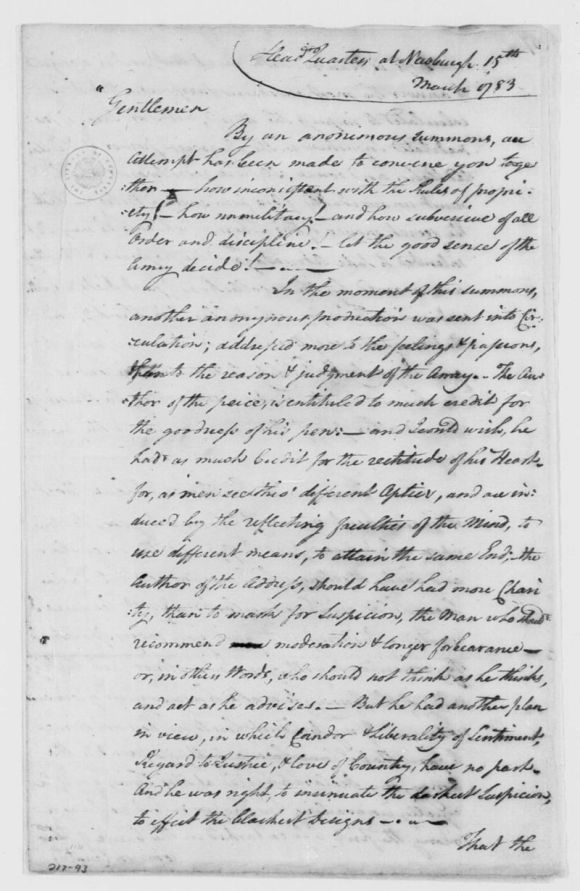 Head Quarters at Newburgh. 15th
March 1783
"Gentlemen
By an anonimous summons, an
attempt has been made to convene you toge
:ther — how inconsistent with the Rules of propri-
:ety! — how unmilitary! — and how subversive of all
Order and discipline. — let the good sense of the
Army decide! —.—.—
In the moment of this summons,
another anonymous production was sent into Cir-
:culation; addressed more to the feelings & passions,
than to the reason & judgment of the Army. — The Au-
:thor of the peice, is entituled to much credit for
the goodness of his pen: — and I could wish, he
had as much Credit for the rectitude of his Heart —
for, as men see thro' different Optics, and are in:
duced by the reflecting faculties of the Mind, to
use different means, to attain the same End; — the
Author of the Address, should have had more Chari
:ty, than to mark for Suspicion, the Man who should
recommend moderation & longer forbearance —
or, in other Words, who should not think as he thinks,
and act as he advises. — But he had another plan
in view, in which Candor & Liberality of Sentiment,
Regard to Justice, & love of Country, have no part.
And he was right, to insinuate the darkest Suspicion,
to effect the blackest Designs —.—.—
That the
217-93